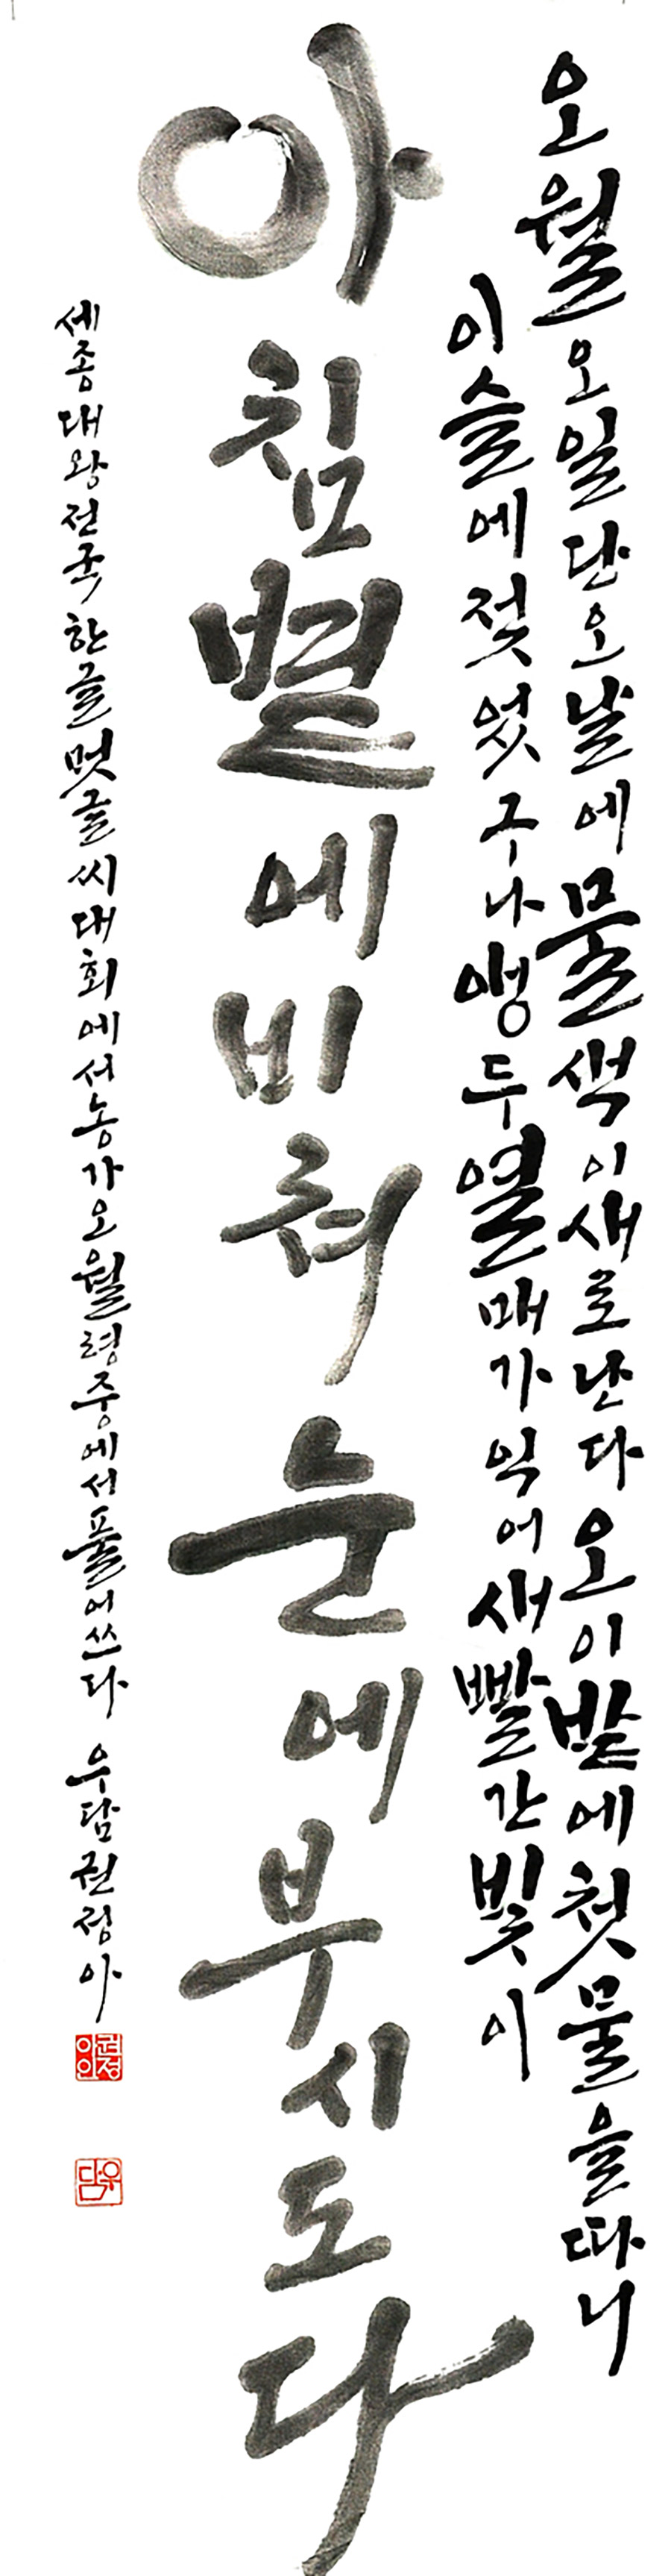 오월오일단오날에물색이새로난다오이밭에첫물을따니
이슬에젖었구나앵두열매가익어새빨간빛이
아침볕에비춰눈에부시도다
세종대왕전국한글멋글씨대회에서농가오월령중에서풀어쓰다 우담권정아
권정아인
우담